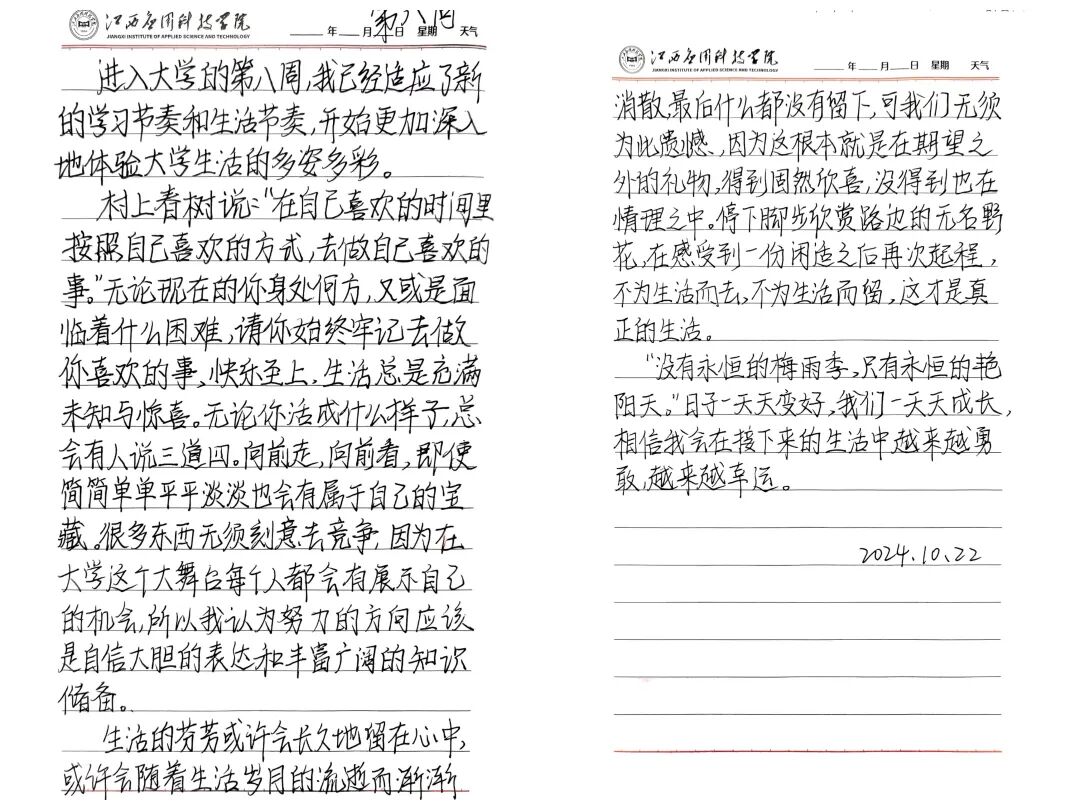 江西应用科技学院
JIANGXI INSTITUTE OF APPLIED SCIENCE AND TECHNOLOGY
年 月 日 星期 天气
第八周
进入大学的第八周,我已经适应了新
的学习节奏和生活节奏,开始更加深入
地体验大学生活的多姿多彩。
村上春树说:“在自己喜欢的时间里
按照自己喜欢的方式,去做自己喜欢的
事。”无论现在的你身处何方,又或是面
临着什么困难,请你始终牢记去做
你喜欢的事,快乐至上,生活总是充满
未知与惊喜。无论你活成什么样子,总
会有人说三道四。向前走,向前看,即使
简简单单平平淡淡也会有属于自己的宝
藏。很多东西无须刻意去竞争,因为在
大学这个大舞台每个人都会有展示自己
的机会,所以我认为努力的方向应该
是自信大胆的表达和丰富广阔的知识
储备。
生活的芬芳或许会长久地留在心中,
或许会随着生活岁月的流逝而渐渐
江西应用科技学院
JIANGXI INSTITUTE OF APPLIED SCIENCE AND TECHNOLOGY
年 月 日 星期 天气
消散,最后什么都没有留下,可我们无须
为此遗憾、因为这根本就是在期望之
外的礼物,得到固然欣喜,没得到也在
情理之中。停下脚步欣赏路边的无名野
花,在感受到一份闲适之后再次起程,
不为生活而去,不为生活而留,这才是真
正的生活。
“没有永恒的梅雨季,只有永恒的艳
阳天。”日子一天天变好,我们一天天成长,
相信我会在接下来的生活中越来越勇
敢,越来越幸运。
2024.10.22